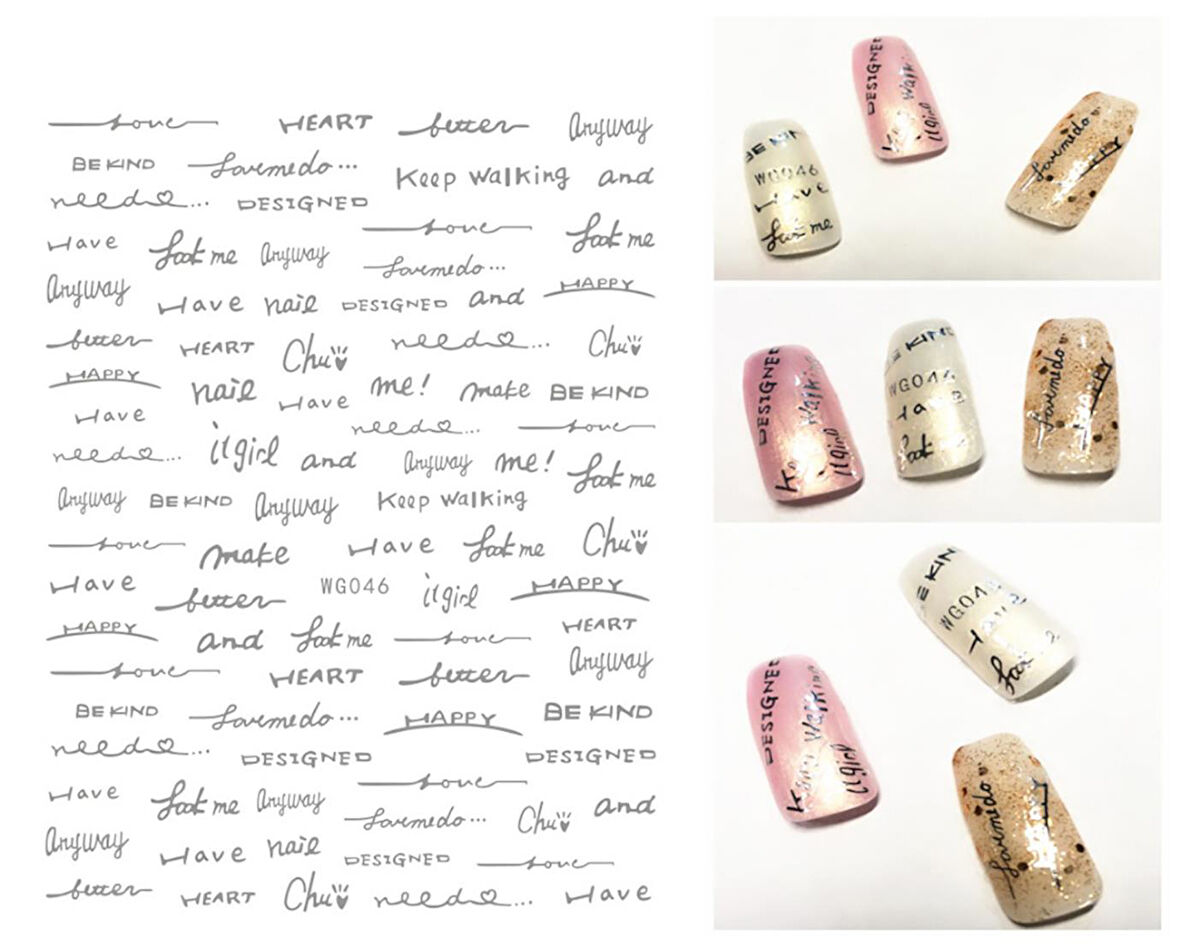 love HEART better Anyway
BE KIND Lovemedo...
Keep walking and
need... DESIGNED
love
Have Look me Anyway Look me
Lovemedo...
Anyway Have nail DESIGNED and HAPPY
better HEART Chu need... Chu
HAPPY nail Have me! make BE KIND
Have
need... love
need... it girl and Anyway me! Look me
Anyway BE KIND Anyway Keep walking
love make Have Look me Chu
Have better WG046 it girl HAPPY
HAPPY and Look me love HEART
love HEART better Anyway
BE KIND Lovemedo... HAPPY BE KIND
need... DESIGNED DESIGNED
love
Have Look me Anyway
Lovemedo... Chu and
Anyway Have nail DESIGNED love
better HEART Chu need... Have
DESIGNED
walk
it girl
BE KIN
WG046
Have
Look me
Lovemedo
HAPPY
DESIGNED
Walking
it girl
BE KIN
WG046
Have
Look
Lovemedo
DESIGNED
Walking
it girl
BE KIN
WG046
Have
Lovemedo